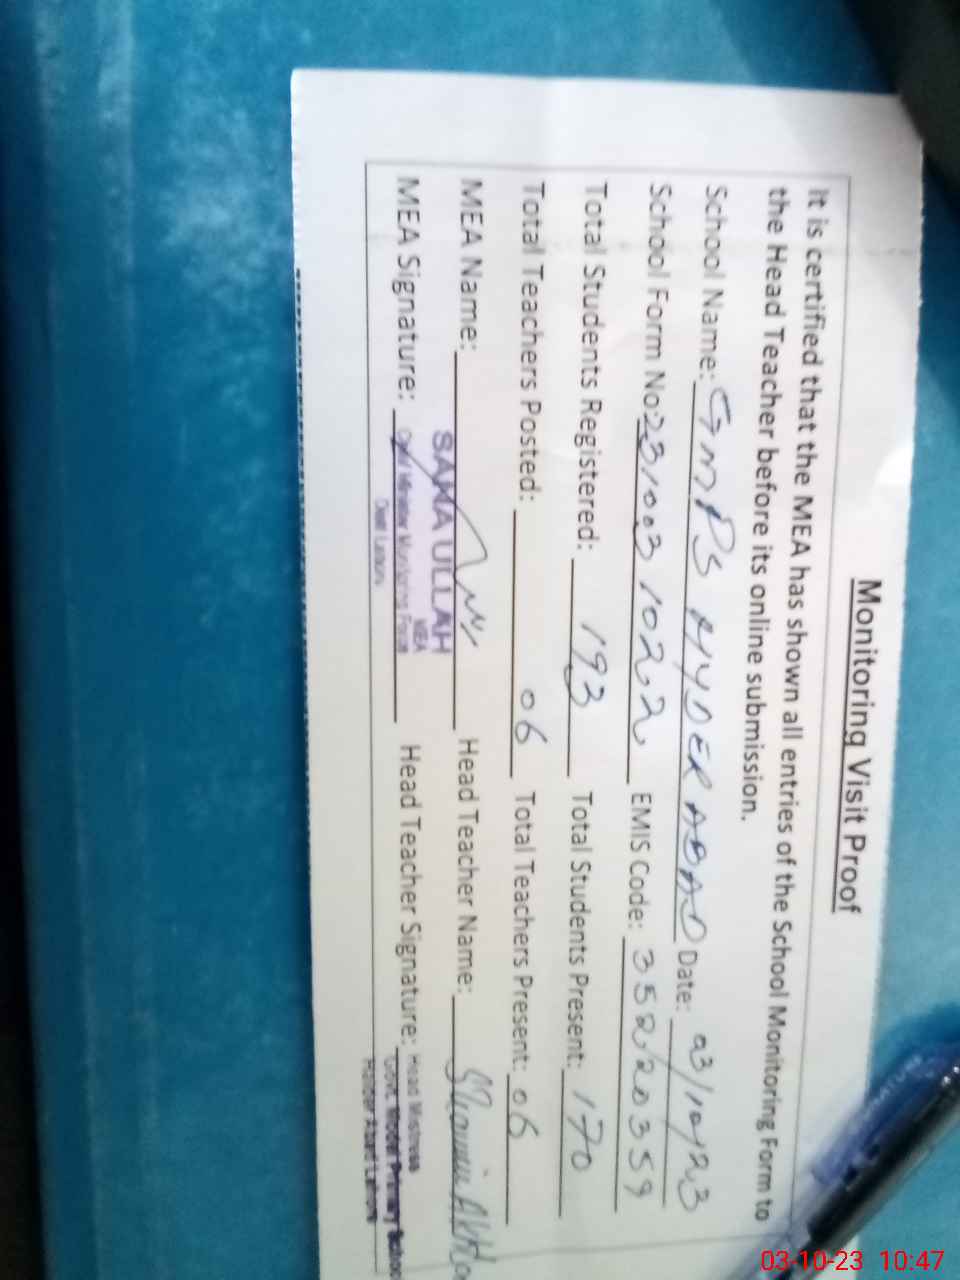 Monitoring Visit Proof
It is certified that the MEA has shown all entries of the School Monitoring Form to
the Head Teacher before its online submission.
School Name: GMPS HYDER ABAD Date: 03/10/23
School Form No: 231003 1022 EMIS Code: 352120359
Total Students Registered: 193 Total Students Present: 170
Total Teachers Posted: 06 Total Teachers Present: 06
MEA Name: Head Teacher Name:
SANA ULLAH
MEA
MEA Signature: Chief Minister Monitoring Force Head Teacher Signature: Head Mistress
Distt Lahore
Govt. Model Primary School
Haider Abad Lahore
03-10-23 10:47